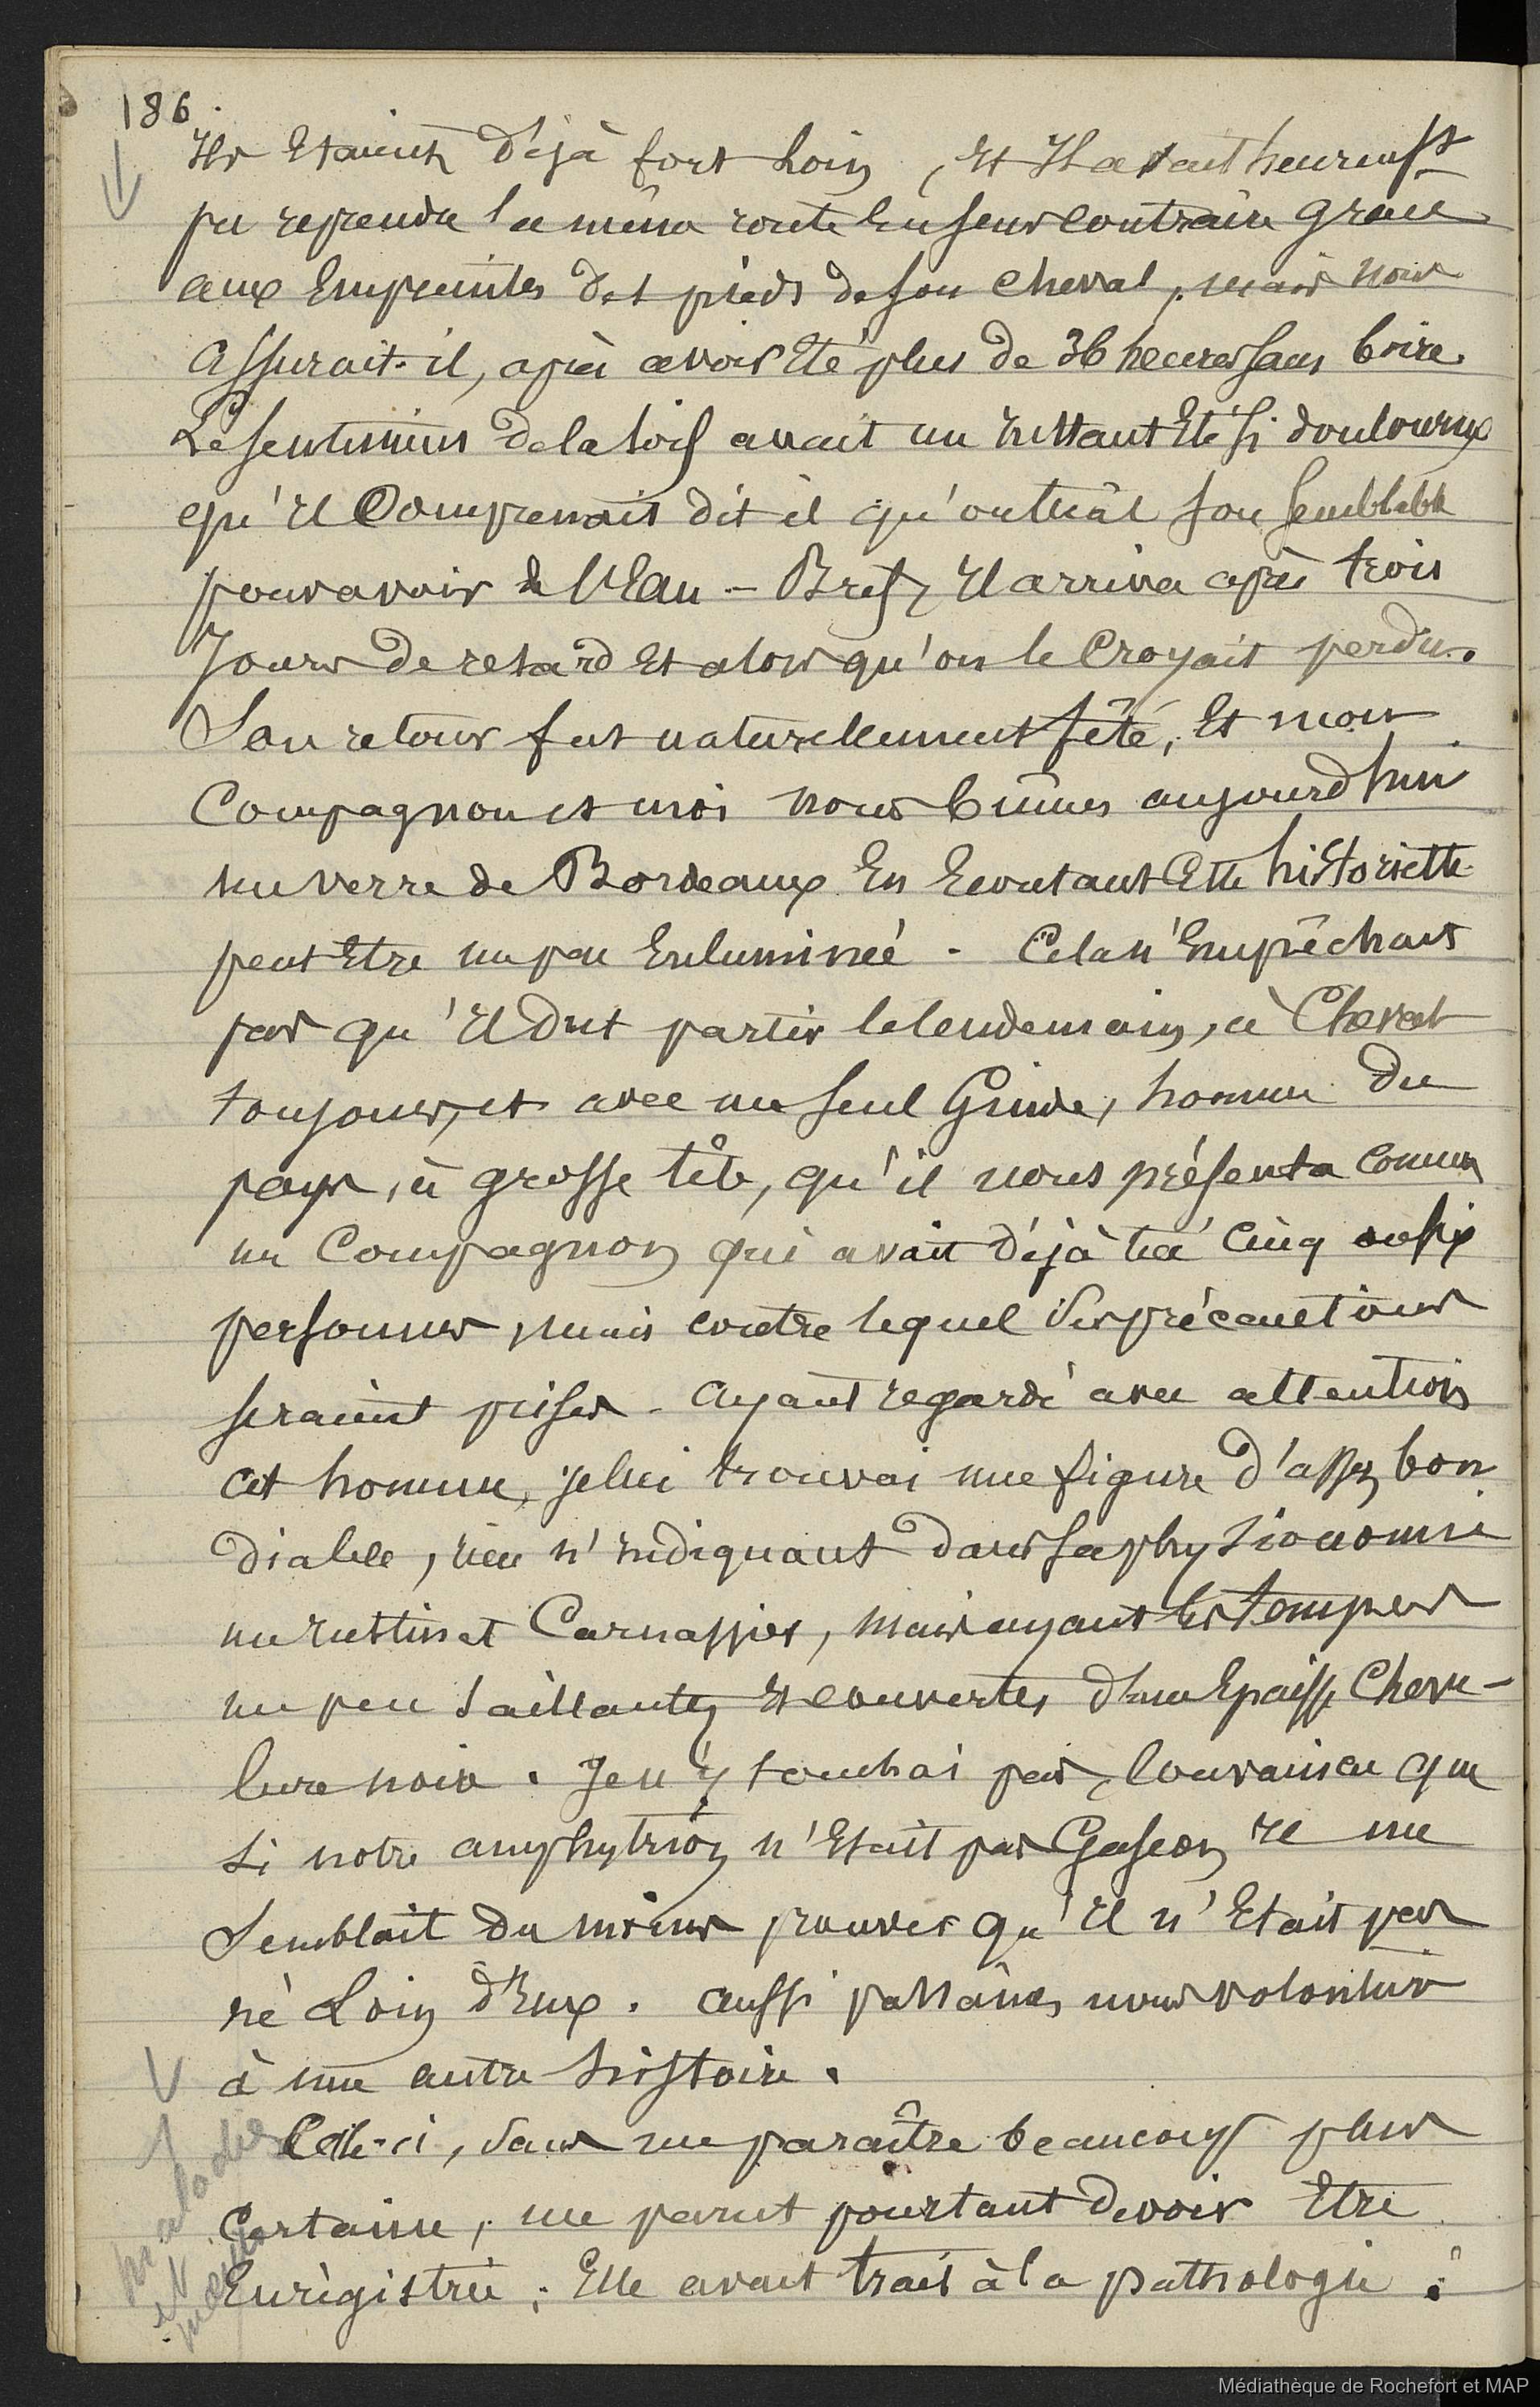 186.
Ils Etaient déjà fort Loin, Et Il avait heureusst
pu reprendre la même route En sens contraire grace
aux Empreintes des pieds de son cheval, mais nous
assurait-il, après avoir Eté plus de 36 heures sans boire.
Le sentiment de la soif avait un instant Eté si douloureux
qu'Il Comprenait dit il qu'on tuât son semblable
pour avoir de l'Eau - Bref, Il arriva après trois
Jours de retard Et alors qu'on le Croyait perdu.
Son retour fut naturellement fêté, Et mon
Compagnon et moi nous bûmes aujourd'hui
un verre de Bordeaux En Ecoutant Cette historiette
peut Etre un peu Enluminée - Cela n'Empêchait
pas qu'Il dut partir le lendemain, à Cheval
toujours, et avec un seul Guide, homme du
pays, à grosse tête, qu'il nous présenta comme
un Compagnon qui avait déjà tué Cinq ou six
personnes, mais contre lequel des précautions
seraient prises - ayant regardé avec attention
cet homme, je lui trouvai une figure d'assez bon
diable, rien n'indiquant dans sa physionomie
un instinct Carnassier, mais ayant les tempes
un peu saillantes Et couvertes d'une Epaisse Cheve-
lure noire. Je n'y touchai pas, Convaincu que
si notre amphytrion n'Etait pas Gascon Il me
Semblait du moins prouver qu'Il n'Etait pas
né Loin d'Eux. aussi passâmes nous volontiers
à une autre histoire.
Celle-ci, sans me paraître beaucoup plus
Certaine, me parut pourtant devoir Etre
Enrégistrée ; Elle avait trait à la pathologie :
maladies
Médiathèque de Rochefort et MAP